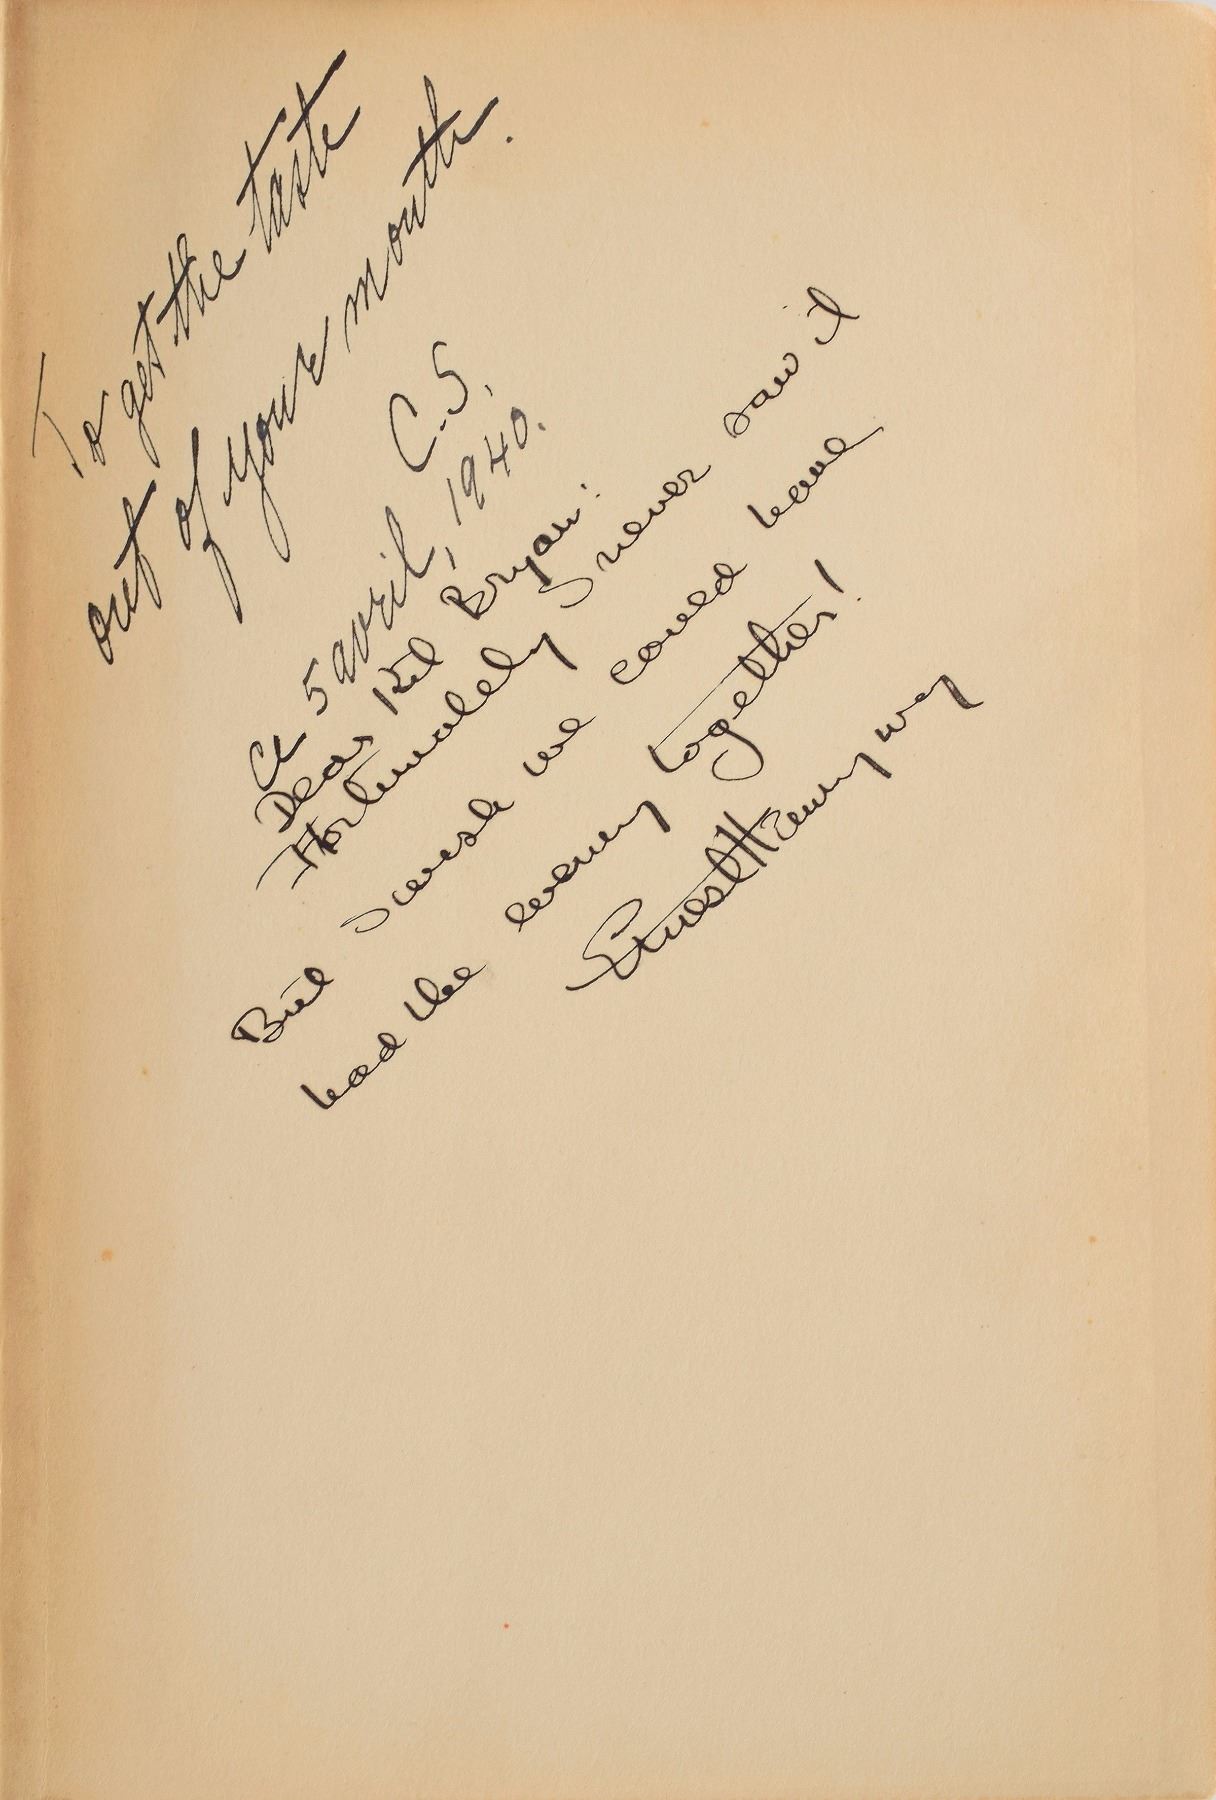 To get the taste
out of your mouth.
C.S.
Ce 5 avril, 1940.
Dear Bryan:
Fortunately I never saw it
But I wish we could have
had the evening together!
Ernest Hemingway